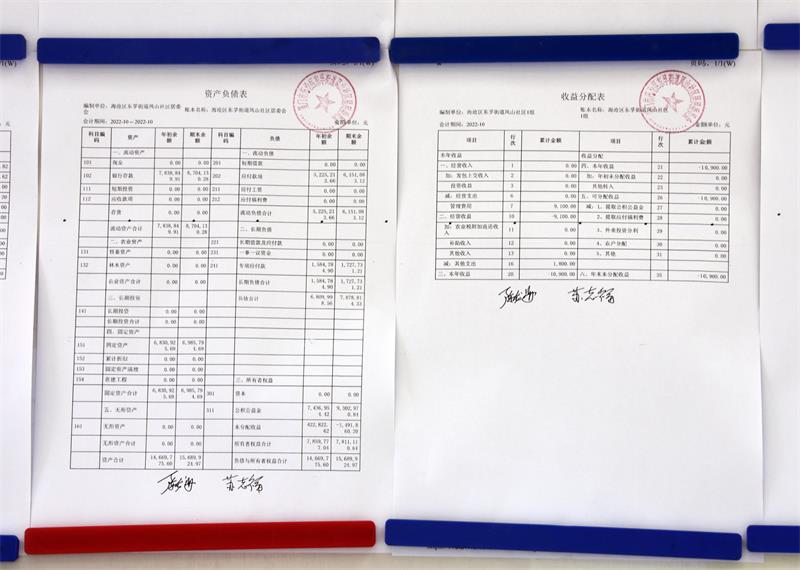 资产负债表
编制单位：海沧区东孚街道凤山社区居委会
账本名称：海沧区东孚街道凤山社区居委会
会计期间：2022-10--2022-10
金额单位：元
科目编码 资产 年初余额 期末余额 科目编码 负债 年初余额 期末余额
一、流动资产 一、流动负债
101 现金 0.00 0.00 201 短期借款 0.00 0.00
102 银行存款 7,838,849.91 8,704,110.28 202 应付款项 5,225,213.66 6,151,083.12
111 短期投资 0.00 0.00 211 应付工资 0.00 0.00
112 应收款项 0.00 0.00 212 应付福利费 0.00 0.00
存货 0.00 0.00 流动负债合计 5,225,213.66 6,151,083.12
流动资产合计 7,838,849.91 8,704,110.28 二、长期负债
二、农业资产 221 长期借款及应付款 0.00 0.00
131 牲畜资产 0.00 0.00 231 一事一议资金 0.00 0.00
132 林木资产 0.00 0.00 241 专项应付款 1,584,784.90 1,727,731.21
农业资产合计 0.00 0.00 长期负债合计 1,584,784.90 1,727,731.21
三、长期投资 负债合计 6,809,998.56 7,878,814.33
141 长期投资 0.00 0.00
长期投资合计 0.00 0.00
四、固定资产
151 固定资产 6,830,925.69 6,985,794.69
152 累计折旧 0.00 0.00
153 固定资产清理 0.00 0.00
154 在建工程 0.00 0.00 三、所有者权益
固定资产合计 6,830,925.69 6,985,794.69 301 资本 0.00 0.00
五、无形资产 311 公积公益金 7,436,954.42 9,302,970.84
161 无形资产 0.00 0.00 未分配收益 422,822.62 -1,491,860.20
无形资产合计 0.00 0.00 所有者权益合计 7,859,777.04 7,811,110.64
资产合计 14,669,775.60 15,689,924.97 负债与所有者权益合计 14,669,775.60 15,689,924.97
页码：1/1(W)
收益分配表
编制单位：海沧区东孚街道凤山社区1组
账本名称：海沧区东孚街道凤山社区1组
会计期间：2022-10
金额单位：元
项目 行次 累计金额 项目 行次 累计金额
本年收益 收益分配
一、经营收入 1 0.00 四、本年收益 21 -10,900.00
加：发包上交收入 2 0.00 加：年初未分配收益 22 0.00
投资收益 3 0.00 其他转入 23 0.00
减：经营支出 6 0.00 五、可分配收益 26 -10,900.00
管理费用 7 9,100.00 减：1、提取公积公益金 27 0.00
二、经营收益 10 -9,100.00 2、提取应付福利费 28 0.00
加：农业税附加返还收入 11 0.00 3、外来投资分利 29 0.00
补助收入 12 0.00 4、农户分配 30 0.00
其他收入 13 0.00 5、其他 31 0.00
减：其他支出 16 1,800.00
三、本年收益 20 -10,900.00 六、年末未分配收益 35 -10,900.00
苏志锦 苏志锦